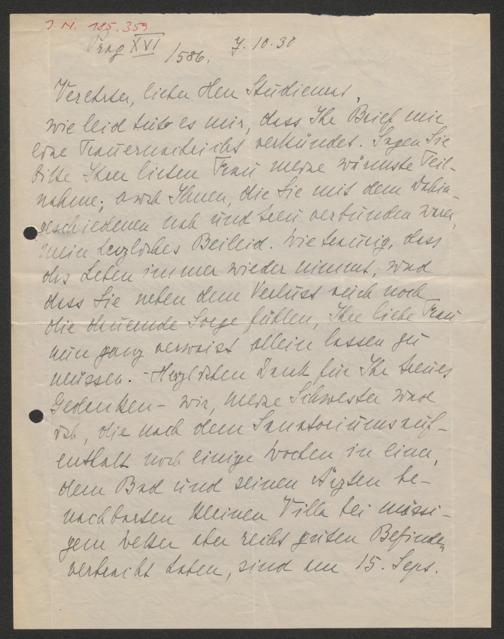 J.N. 185.353
Prag XVI/586. 7.10.30
Verehrter, lieber Herr Studienrat,
wie leid tut es mir, dass Ihr Brief mir
eine Trauernachricht verkündet. Sagen Sie
bitte Ihrer lieben Frau meine wärmste Teil-
nahme; auch Ihnen, die Sie mit dem Dahin-
geschiedenen nah und treu verbunden waren,
mein herzliches Beileid. Wie traurig, dass
das Leben immer wieder nimmt, und
dass Sie neben dem Verlust auch noch
die dauernde Sorge fühlen, Ihre liebe Frau
nun ganz verwaist allein lassen zu
müssen. - Herzlichsten Dank für Ihr treues
Gedenken - wir, meine Schwester und
ich, die nach dem Sanatoriumsauf-
enthalt noch einige Wochen in einer,
dem Bad und seinen Ärzten be-
nachbarten kleinen Villa bei mässi-
gem Wetter aber recht gutem Befinden
verbracht haben, sind am 15. Sept.